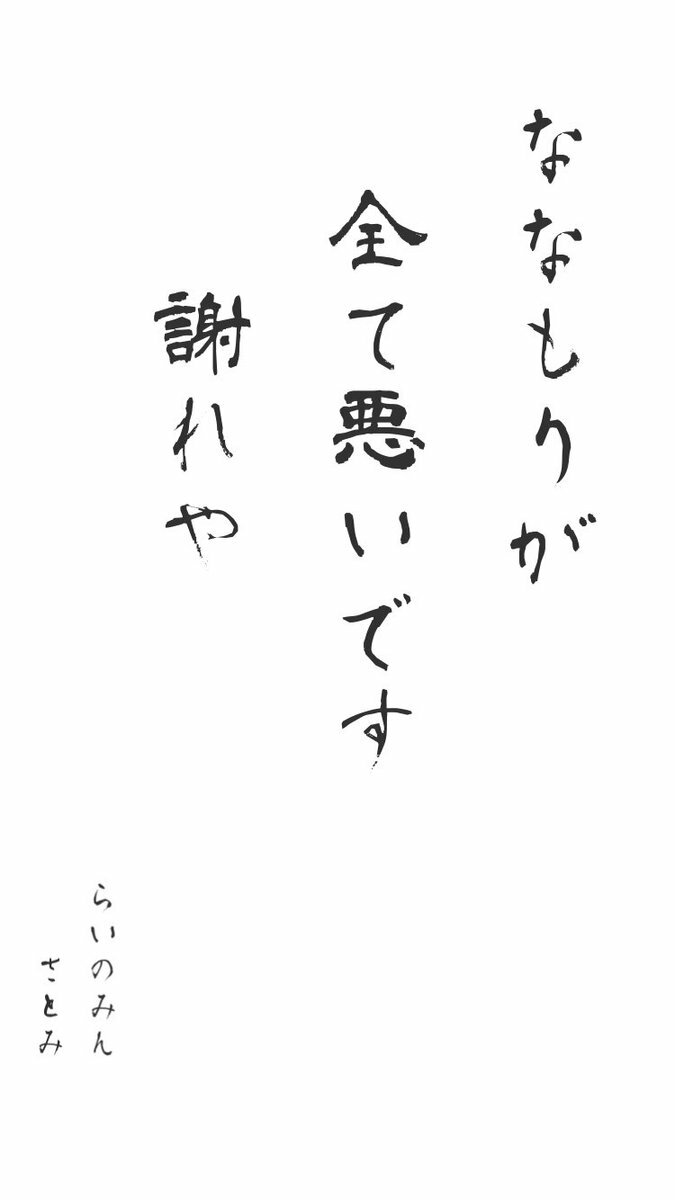 ななもりが
全て悪いです
謝れや
らいのみん
さとみ